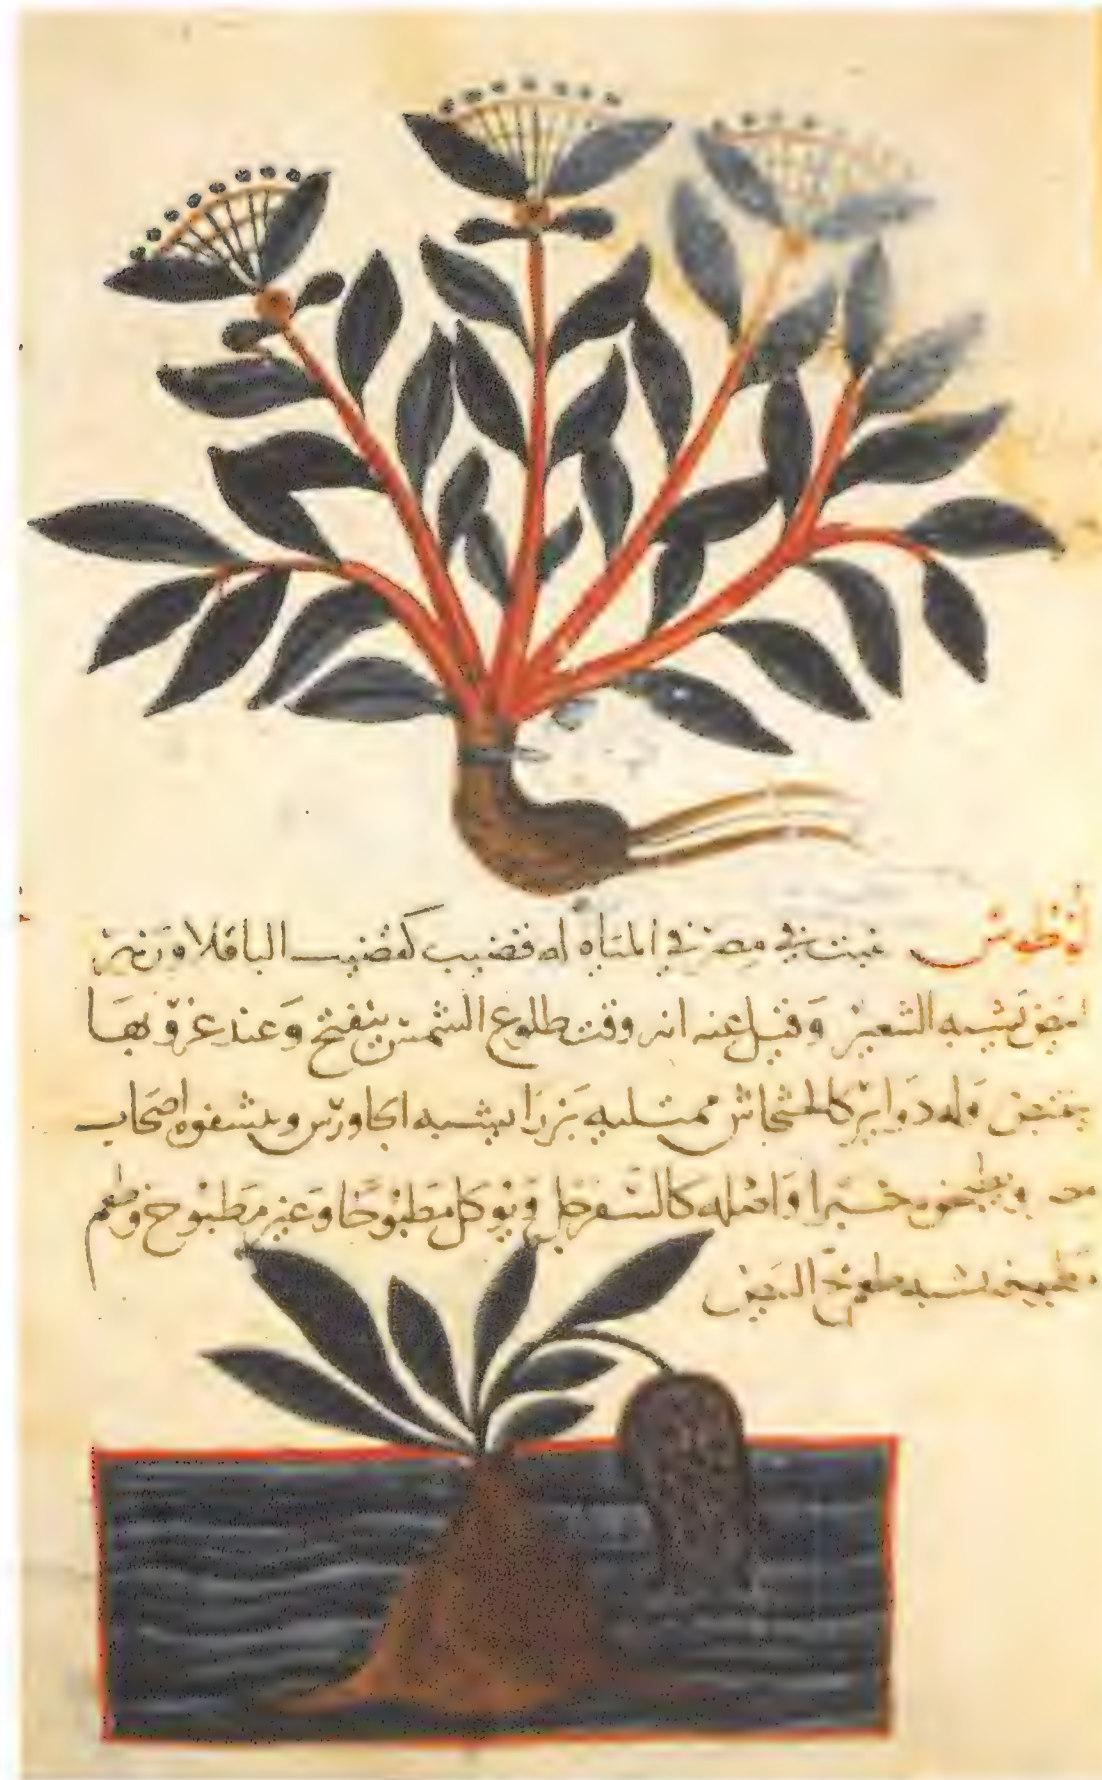 لوطوس ينبت في مصر في المياه له قضيب كقضيب الباقلا وزهر
ابيض يشبه الشعير وقيل عنه انه وقت طلوع الشمس ينفتح وعند غروبها
ينقبض وله دواير كالخشخاش ممتليه بزرا يشبه الجاورس وينشفوه اصحاب
مصر ويطبخوه خبزا واصله كالسفرجل ويوكل مطبوخا وغير مطبوخ وطعم
يشبه البيض